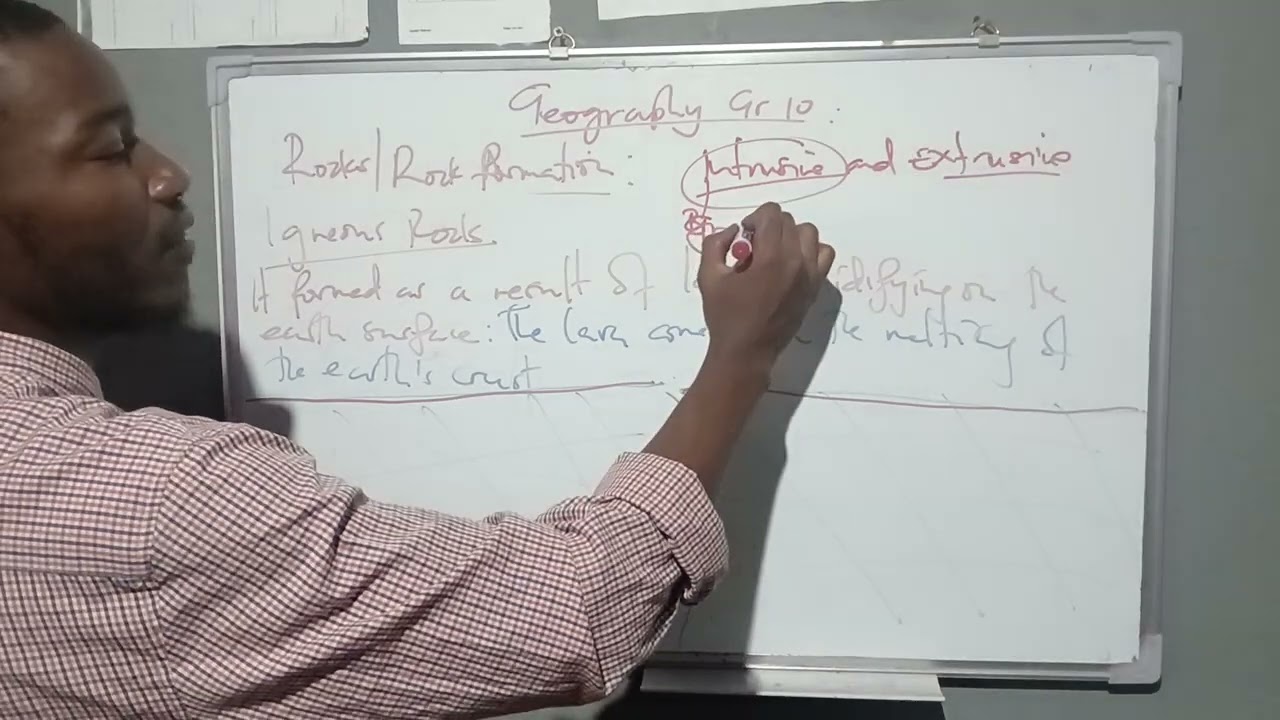 Geography Gr 10 :
Rocks/Rock formation : Intrusive and extrusive
Igneous Rocks.
It formed as a result of idifying on the
earth surface: The lava come the melting of
the earth's crust